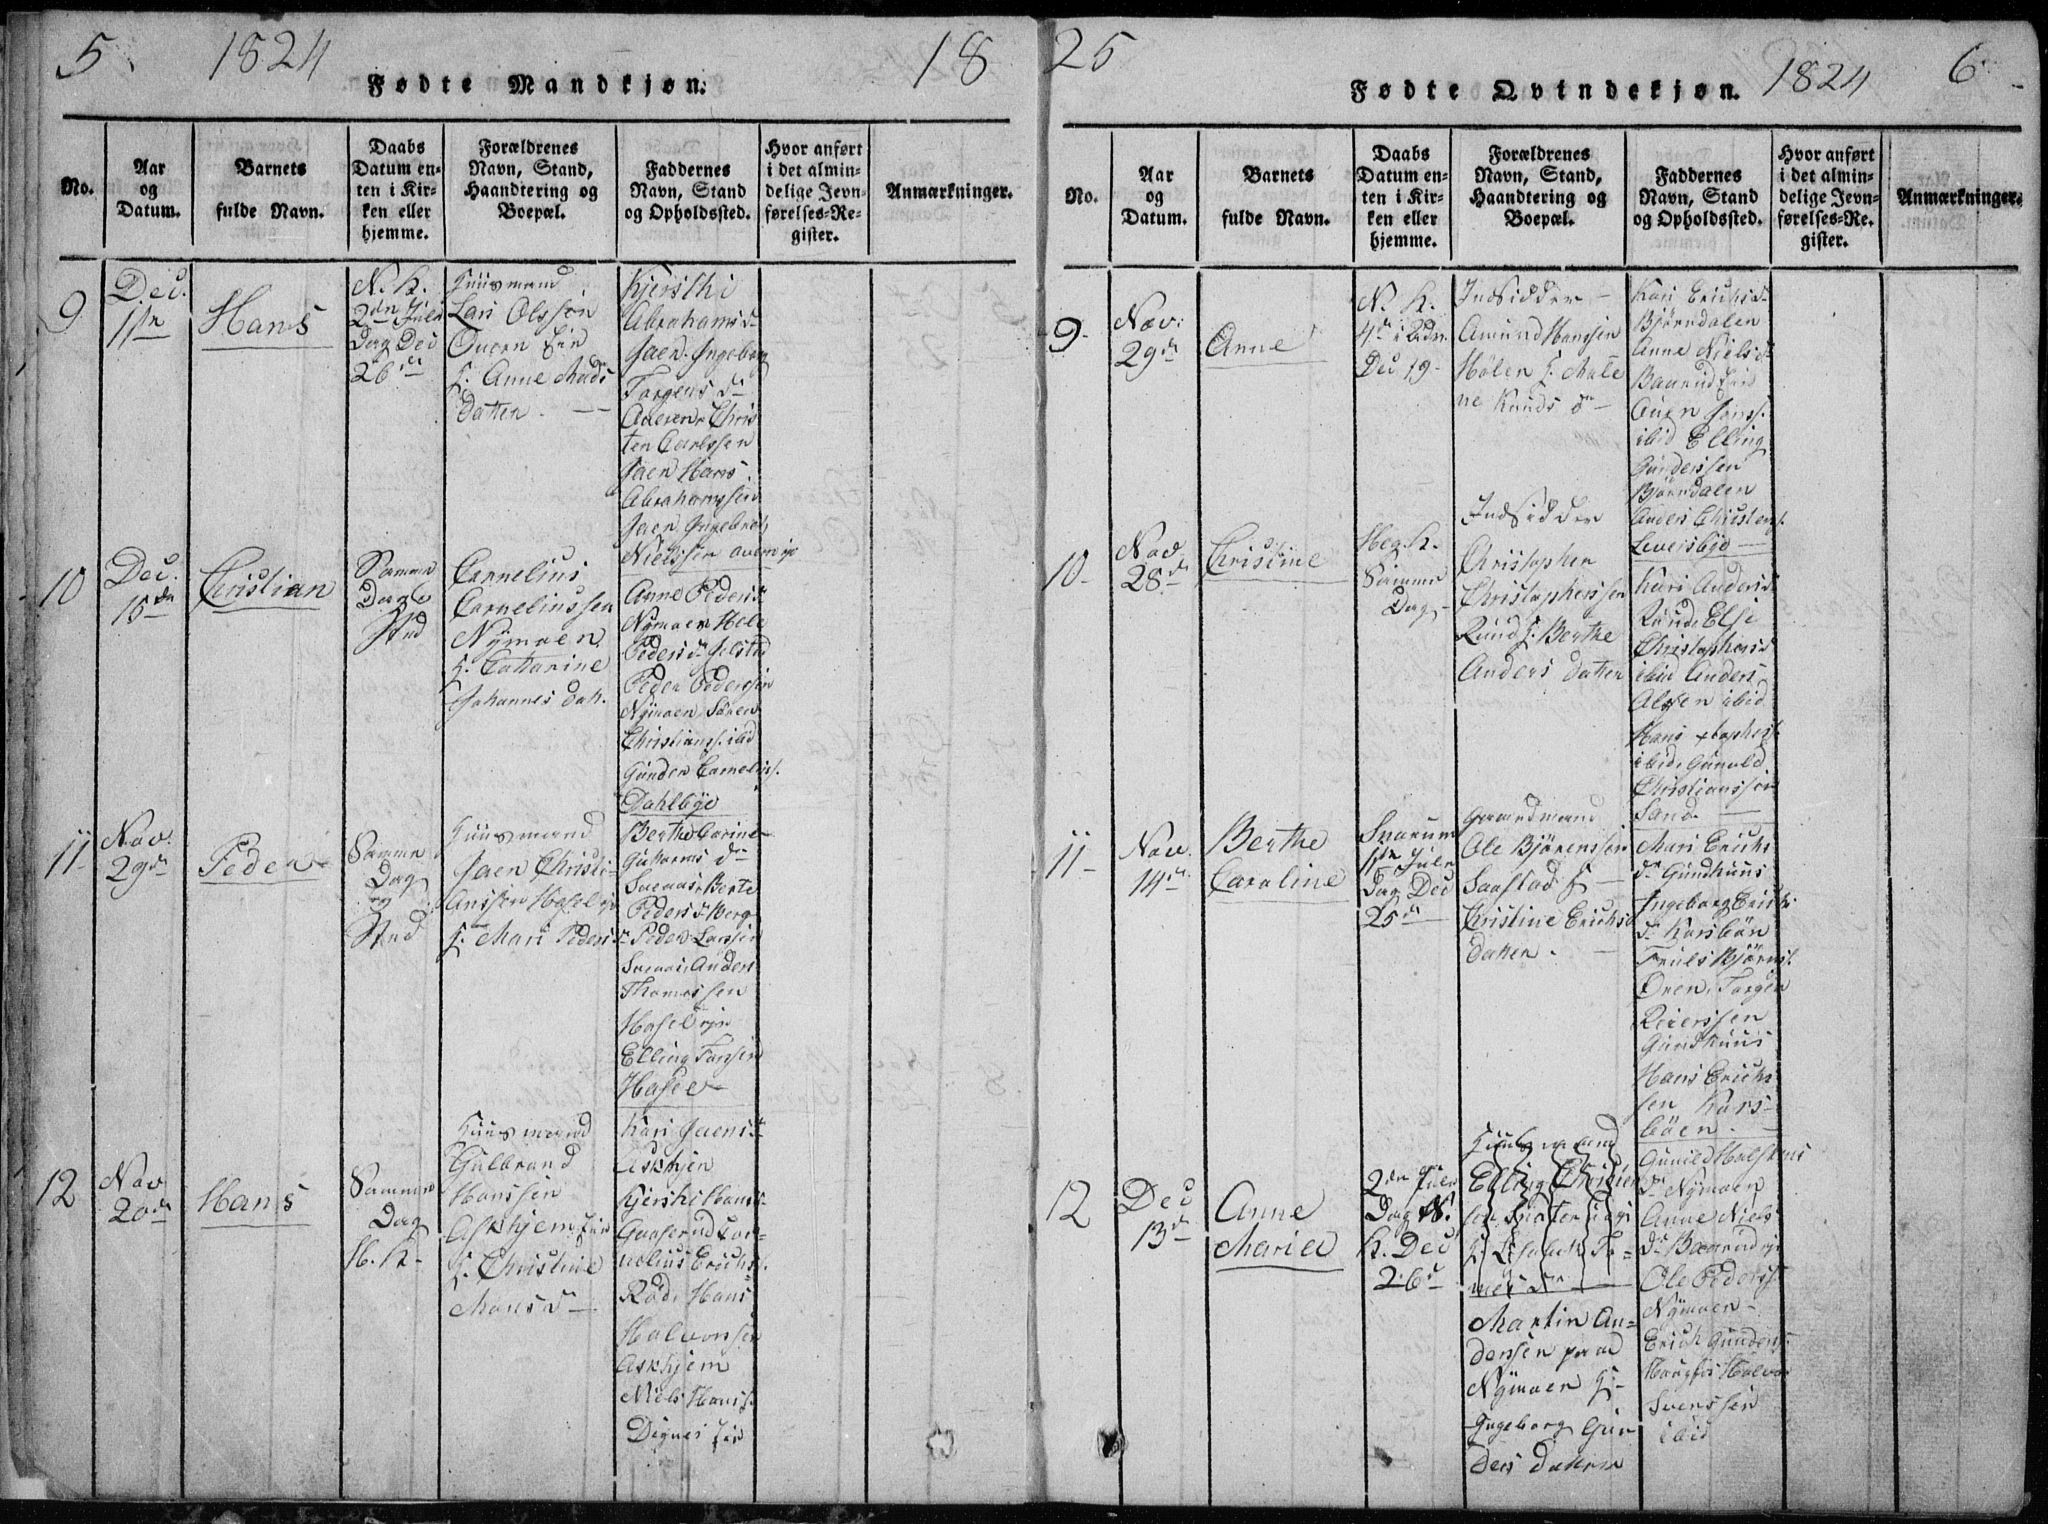 5. 1824 18
Fødte Mandkjøn.
No.
Aar
og
Datum.
Barnets
fulde Navn.
Daabs
Datum en-
ten i Kir-
ken eller
hjemme.
Forældrenes
Navn, Stand,
Haandtering og
Boepæl.
Faddernes
Navn, Stand
og Opholdssted.
Hvor anført
i det almin-
delige Jevn-
førelses-Re-
gister.
Anmærkninger.
9.
Dec.
11te
Hans
N. K.
2den Jule
Dag Dec
26de
Huusmand
Lars Olssøn
Qvern Eie
H. Anne Mads
datter.
Kjersthi
Abrahamsd
Jaen Ingeborg
Torgersd
Christ
ten Carlssen
Jaen Hans
Abrahamssen
Jaen Ingebret
Nielssen
10
Dec.
15de
Christian
Samme
Dag
Sted
Cornelius
Corneliussen
Nÿmoen
H. Catharine
Johannes dat.
Anne Peders
Nÿmoen
Pedersd
Peder Pederssen
Nÿmoen Sören
Christians. ibid
Gunder Cornelius.
Dahlbÿe
11
Nov.
29de
Peder
Samme
Dag
og
Sted
Huusmand
Jaen Christi-
anssen Hasel eje
H. Mari Pedersd
Berthe Carine
Berte
Peders Berg
Peder Larssen
Anders
Thomessen
Hasel eje
Elling
Hasel
12
Nov
20de
Hans
Samme
Dag
H. K.
Huusmand
Gulbrand
Hanssen
Askhjem Eie
H. Christine
Hansd
Kari Jaensd
Askhjem
Kjersti Hans
Cor-
nelius Erichs.
Röd, Hans
Halvorssen
Askhjem
Niels Hanss.
Eie
25 1824 6.
Fødte Qvindekjøn.
No.
Aar
og
Datum.
Barnets
fulde Navn.
Daabs
Datum en-
ten i Kir-
ken eller
hjemme.
Forældrenes
Navn, Stand,
Haandtering og
Boepæl.
Faddernes
Navn, Stand
og Opholdssted.
Hvor anført
i det almin-
delige Jevn-
førelses-Re-
gister.
Anmærkninger.
9.
Nov:
29de
Anne
N. K.
4de i Adv.
Dec 19
Indsidder
Amund Hanssen
Hölen H. Male
ne Knudsd
Kari Erichsd
Björndalen
Anne Nielsd
Eie
ibid Elling
Gunderssen
Björndalen
Anders Christens.
Leversbÿe
10
Nov
28de
Christine
Heg. K.
Samme
Dag
Indsidder
Christopher
Christopherssen
Ruud H. Berthe
Anders datter
Kari Andersd
Ruud, Else
Christophersd
ibid Anders
Olssen ibid
Hans Xtophers.
ibid, Gunuld
Christianssen
Sand.
11
Nov.
14de
Berthe
Caroline
Snarum
1ste Jule
Dag Dec
25de
Gaardmand
Ole Björenssen
Saastad H
Christine Erichs
datter.
Mari Erichs
d. Gundhuus
Ingeborg Erichs
d. Korsbön
Truls Björns.
Oren, Torger
Reierssen
Gundhuus
Hans Erichs
sen Kors
böen.
12
Dec
13de
Anne
Maria
2den Jule
Dag N.
K. Dec
26de
Huusmand
Elling Christen
sen
H. Lisabeth
Martin An-
derssen paa
Nÿmoen H
Ingeborg Gun
ders datter
Gunild Halstens
d. Nÿmoen
Anne Niels
d.
Ole Peders.
Nÿmoen
Erich Gunders.
Haugfos Halvor
Svenssen
ibid